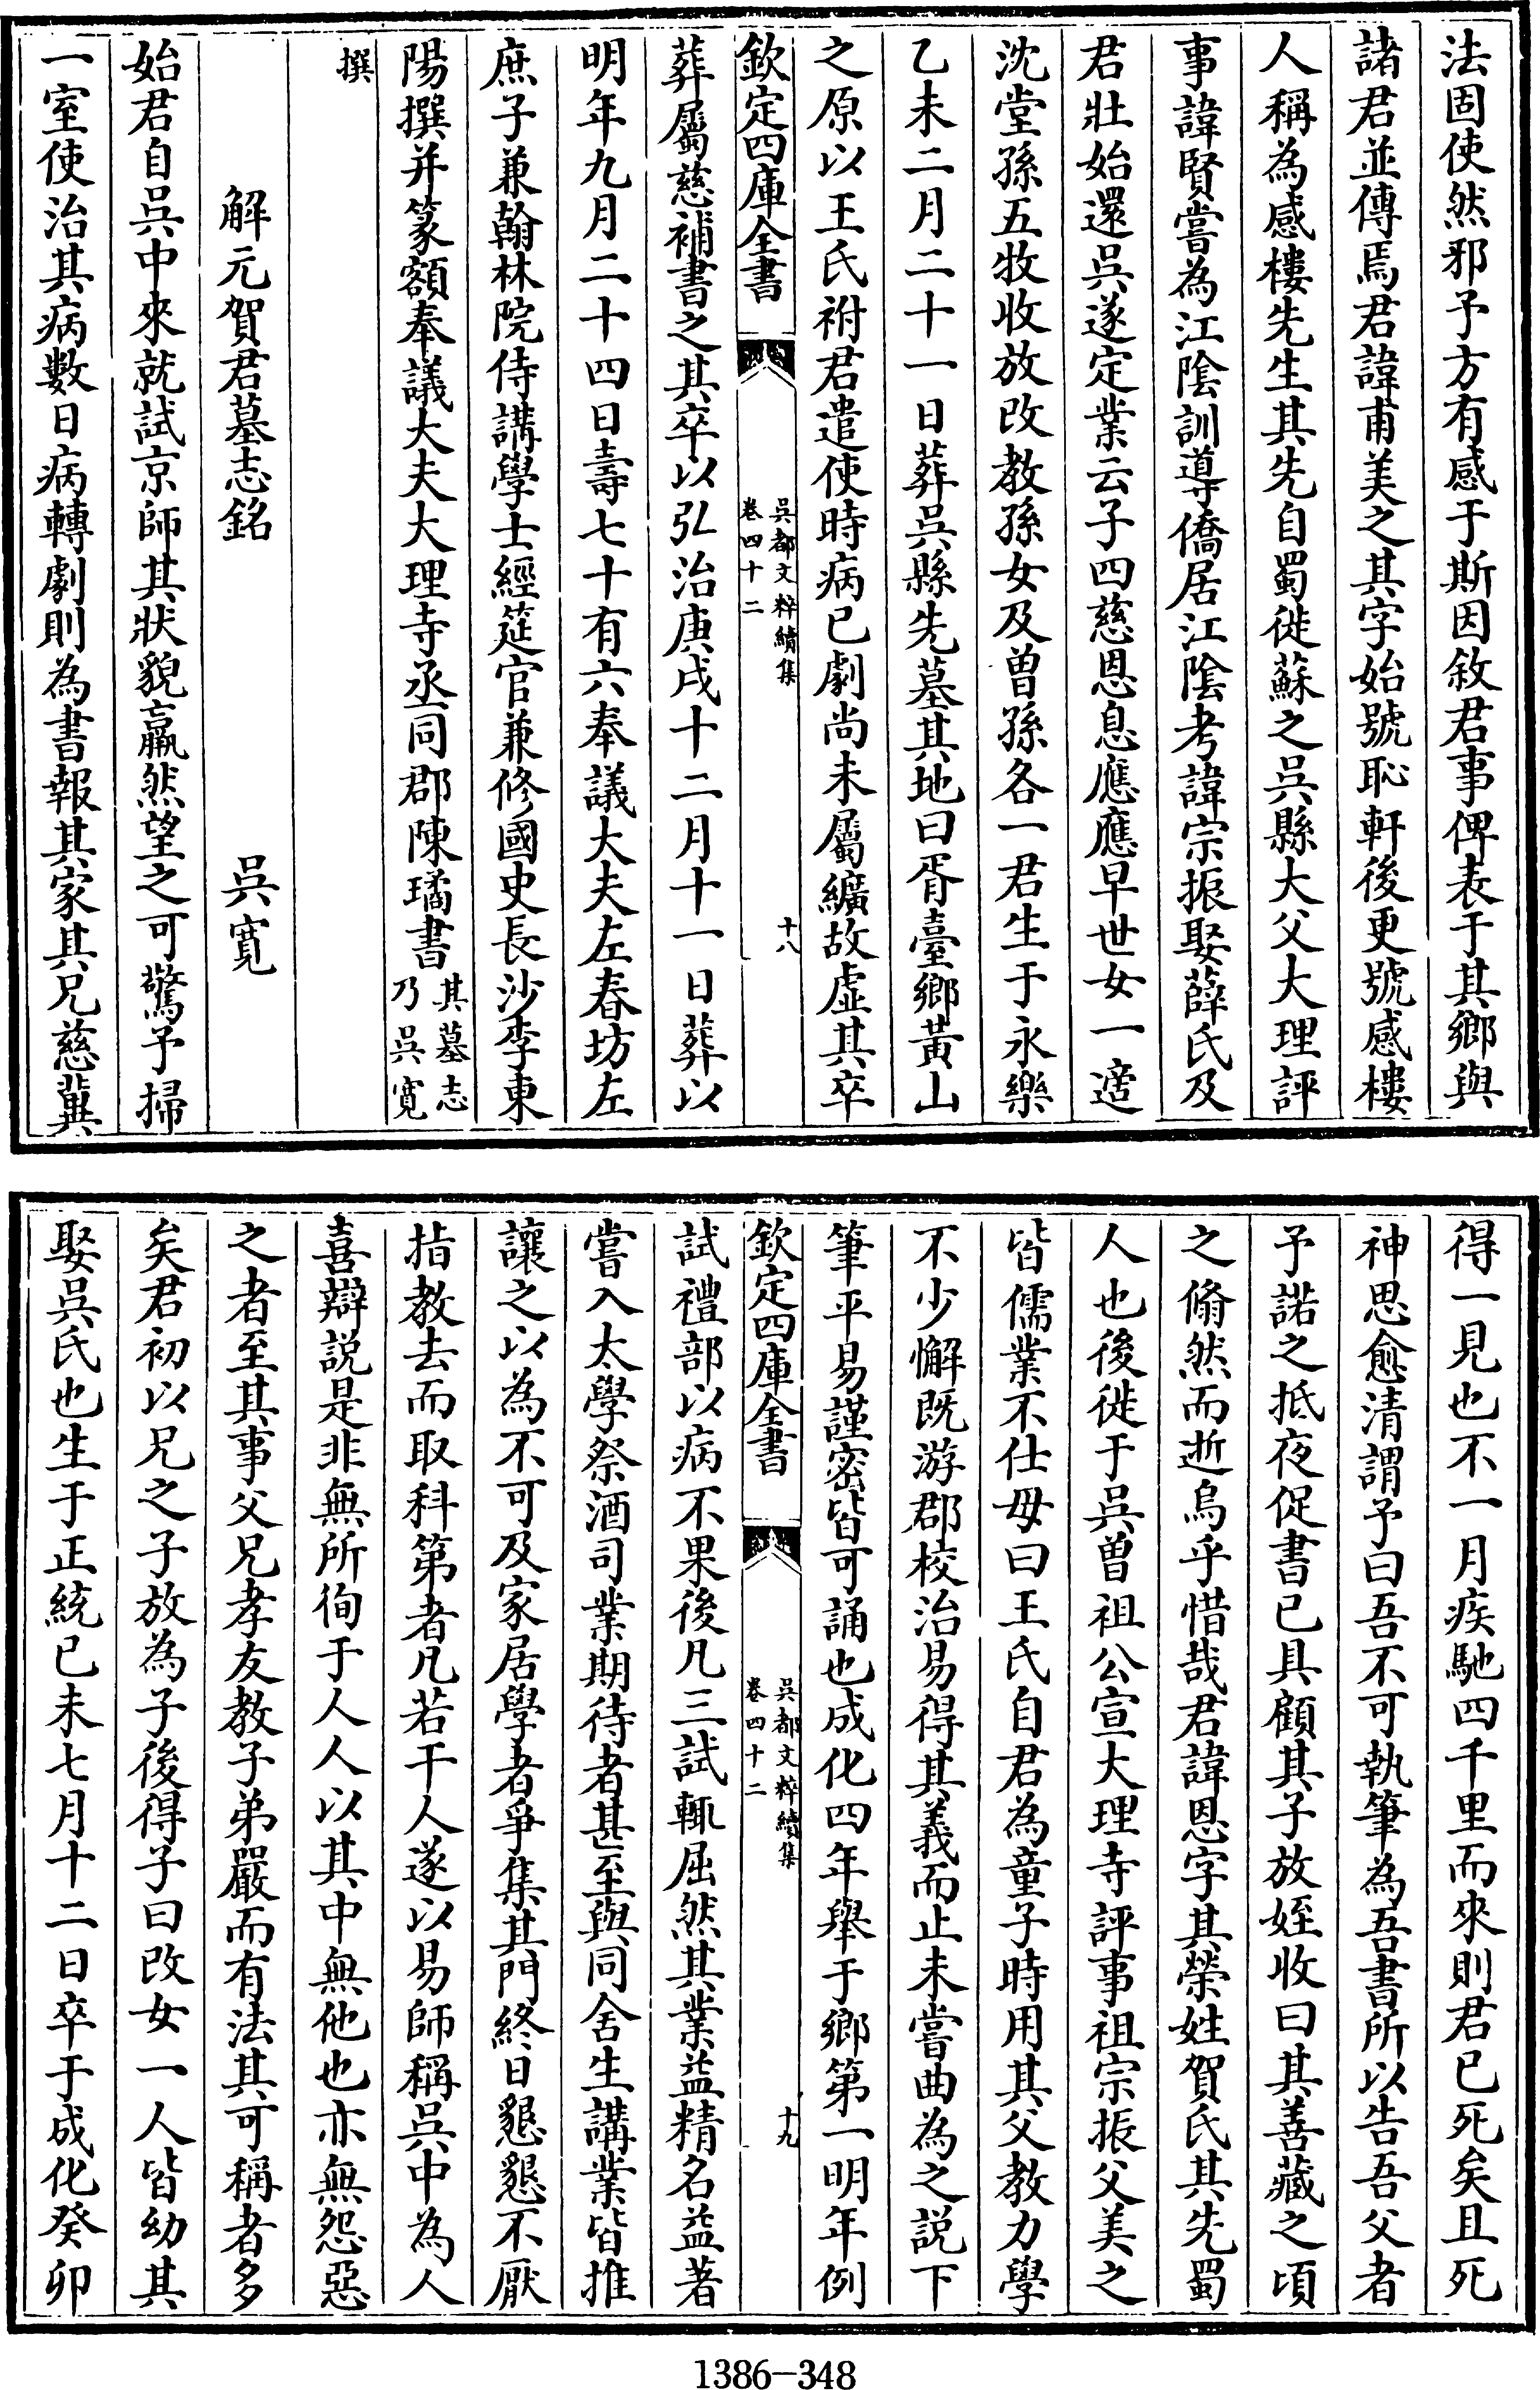 法固使然邪予方有感于斯因敘君事俾表于其鄉與
諸君並傳焉君諱甫美之其字始號恥軒後更號感樓
人稱為感樓先生其先自蜀徙蘇之吳縣大父大理評
事諱賢嘗為江陰訓導僑居江陰考諱宗振娶薛氏及
君壯始還吳遂定業云子四慈恩息應應早世女一適
沈堂孫五牧收放改教孫女及曾孫各一君生于永樂
乙未二月二十一日葬吳縣先墓其地曰胥臺鄉黃山
之原以王氏祔君遣使時病已劇尚未屬纊故虛其卒
欽定四庫全書
吳都文粹續集
卷四十二
十八
葬屬慈補書之其卒以弘治庚戌十二月十一日葬以
明年九月二十四日壽七十有六奉議大夫左春坊左
庶子兼翰林院侍講學士經筵官兼修國史長沙李東
陽撰并篆額奉議大夫大理寺丞同郡陳璚書其墓志
乃吳寛
撰
解元賀君墓志銘 吳寛
始君自吳中來就試京師其狀貌羸然望之可驚予掃
一室使治其病數日病轉劇則為書報其家其兄慈冀
得一見也不一月疾馳四千里而來則君已死矣且死
神思愈清謂予曰吾不可執筆為吾書所以告吾父者
予諾之抵夜促書已具顧其子放姪收曰其善藏之頃
之翛然而逝烏乎惜哉君諱恩字其榮姓賀氏其先蜀
人也後徙于吳曽祖公宣大理寺評事祖宗振父美之
皆儒業不仕母曰王氏自君為童子時用其父教力學
不少懈既游郡校治易得其義而止未嘗曲為之説下
筆平易謹密皆可誦也成化四年舉于鄉第一明年例
欽定四庫全書
吳都文粹續集
卷四十二
十九
試禮部以病不果後凡三試輒屈然其業益精名益著
嘗入太學祭酒司業期待者甚至與同舍生講業皆推
讓之以為不可及家居學者爭集其門終日懇懇不厭
指教去而取科第者凡若干人遂以易師稱吳中為人
喜辯説是非無所徇于人人以其中無他也亦無怨惡
之者至其事父兄孝友教子弟嚴而有法其可稱者多
矣君初以兄之子放為子後得子曰改女一人皆幼其
娶吳氏也生于正統己未七月十二日卒于成化癸卯
1386-348